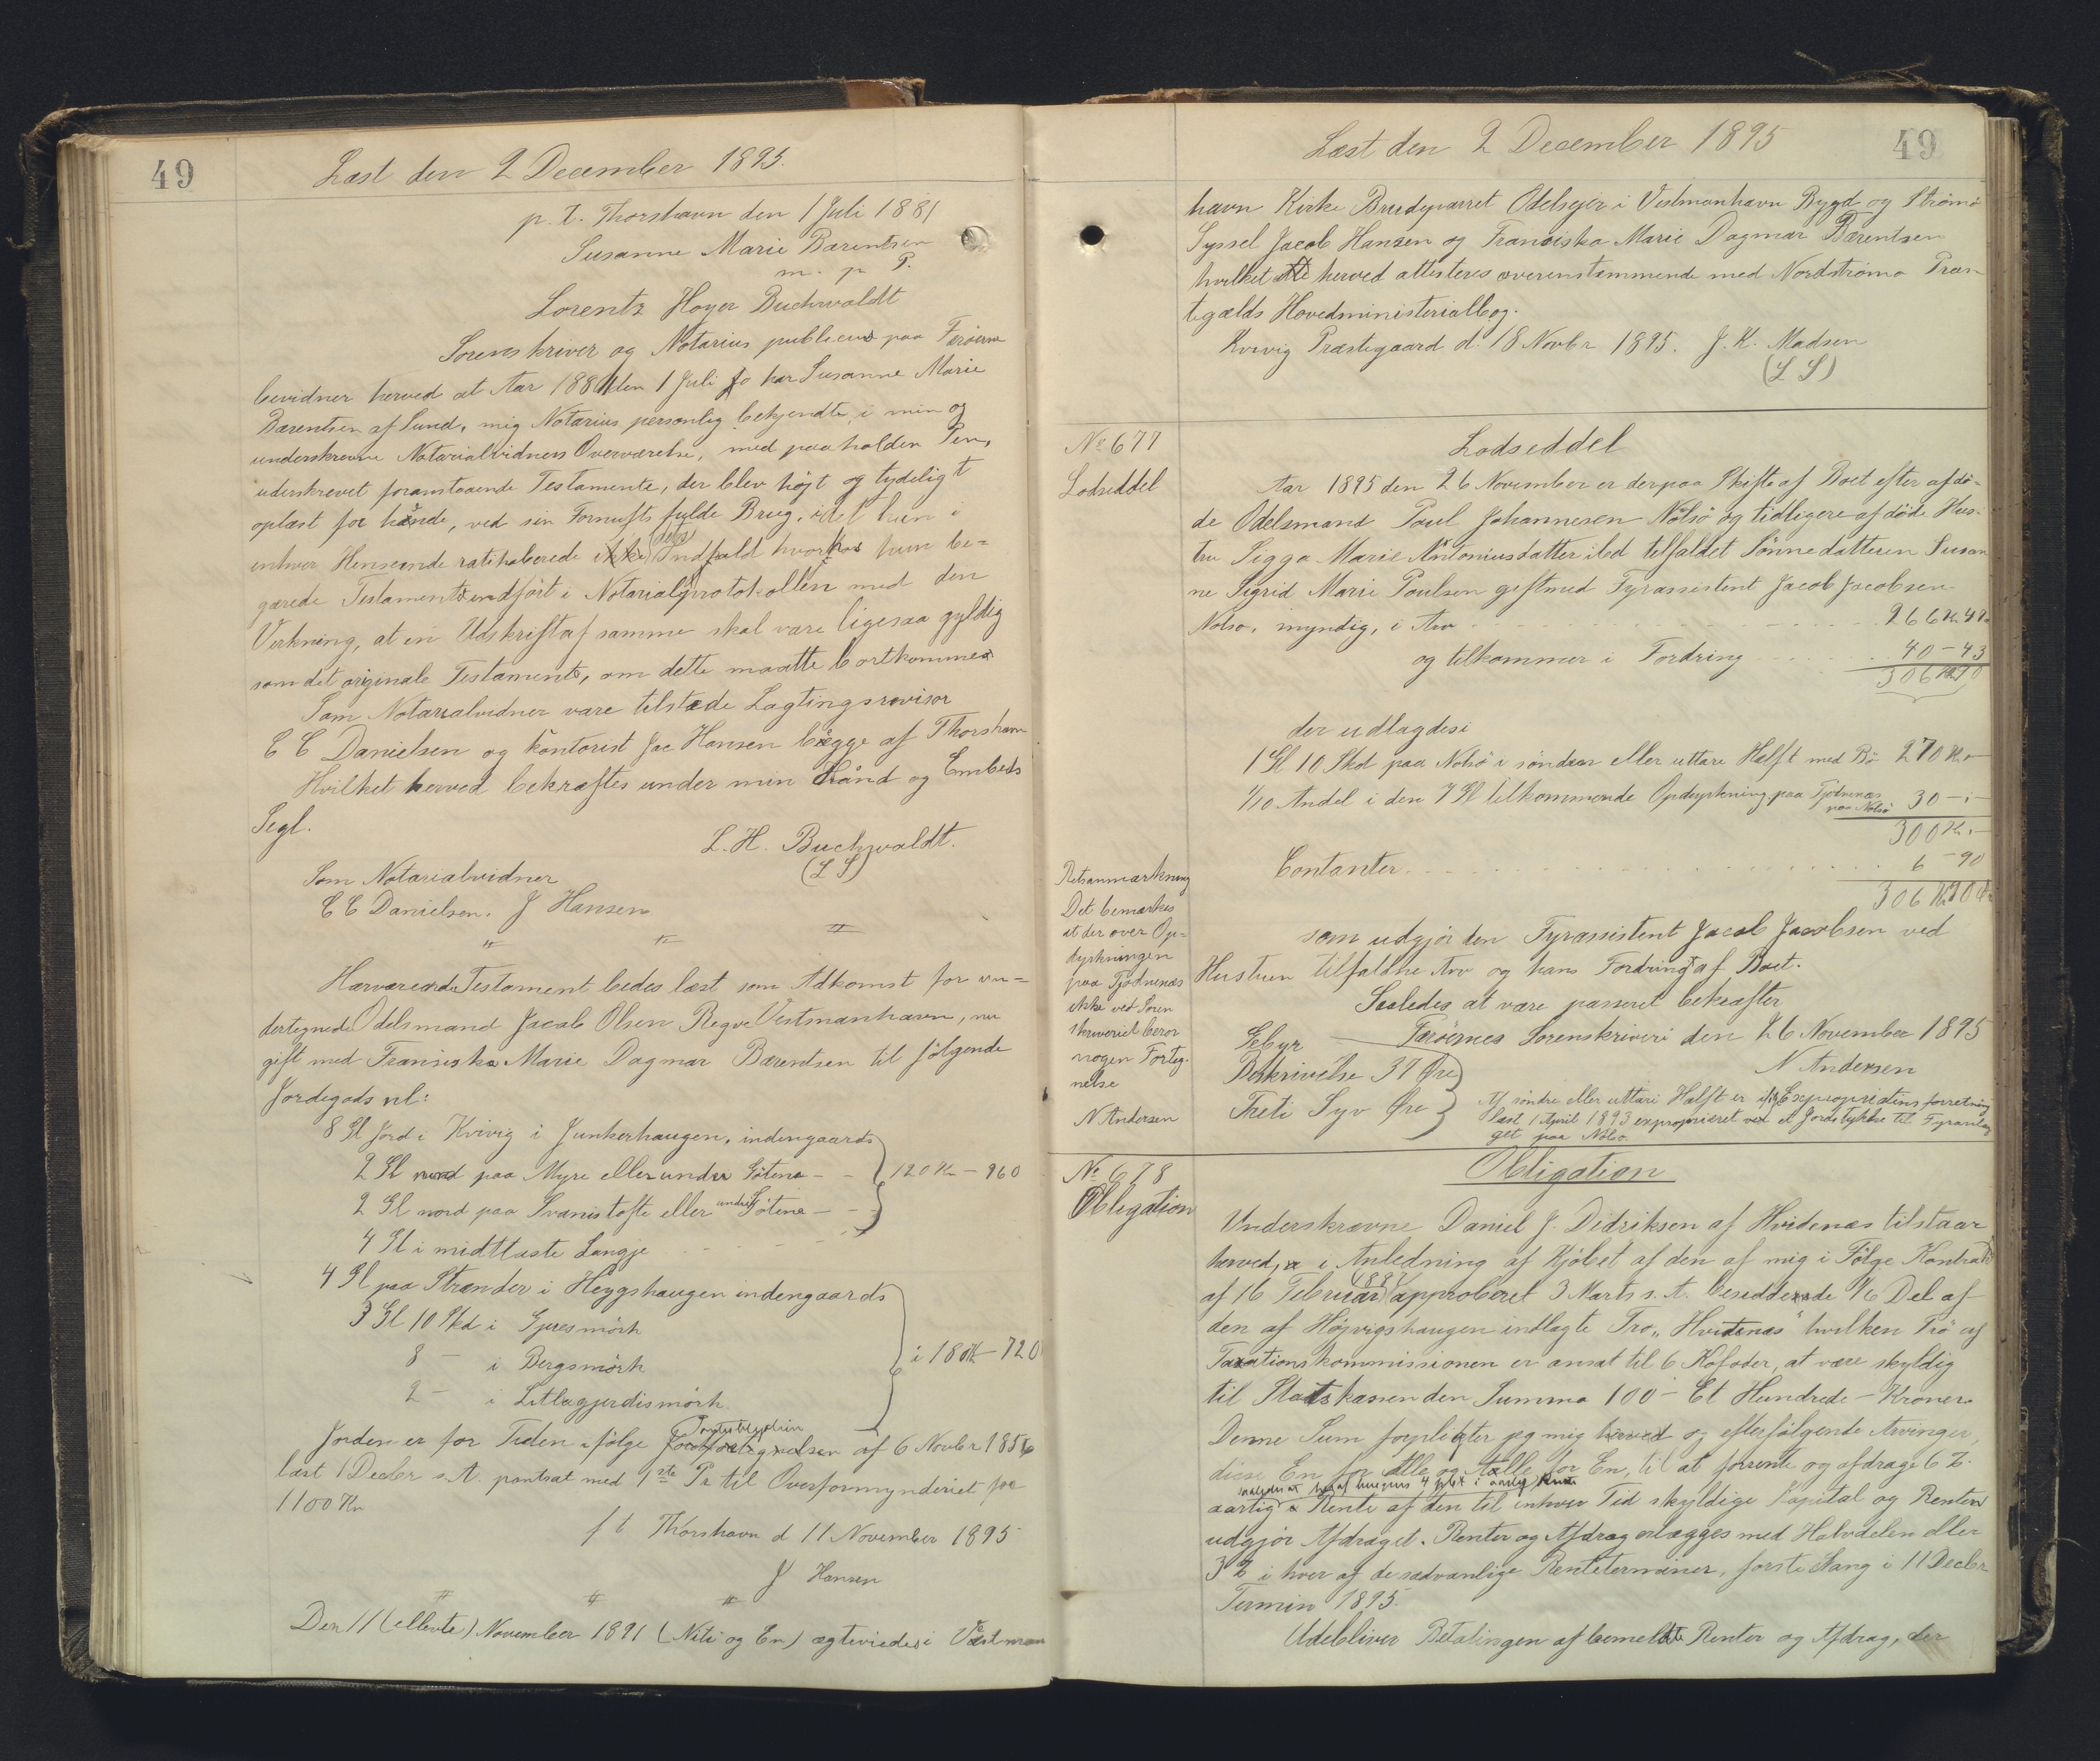 49
Læst den 2 December 1895.
p. t. Thorshavn den 1 Juli 1881
Susanne Marie Barentsen
m. p. P.
Lorentz Hoyer Buchwaldt
Sorenskriver og Notarius publicus paa Færøerne
bevidner herved at Aar 1881 den 1 Juli har Susanne Marie
Barentsen af Sund, mig Notarius personlig bekjendte, i min og
underskrevne Notarialvidners Overværelse, med paaholden Pen,
uderskrevet foranstaaende Testamente, der blev højt og tydeligt
oplæst for hende, ved sin Fornufts fulde Brug, idet hun i
enhver Henseende ratihaberede dets Indhold hvorhos hun be=
gærede Testamentet indført i Notarialprotokollen med den
Virkning, at en Udskrift af samme skal være ligesaa gyldig
som det originale Testamente, om dette maatte bortkomme
Som Notarialvidner vare tilstede Lagtingsrevisor
C C Danielsen og Kontorist Jac Hansen begge af Thorshavn
Hvilket herved bekræftes under min Hånd og Embeds
Segl.
L. H. Buchwaldt.
(L S)
Som Notarialvidner
C C Danielsen. J Hansen
Nærværende Testament bedes læst som Adkomst for un=
dertegnede Odelsmand Jacob Olsen Regve Vestmanhavn, nu
gift med Fransiska Marie Dagmar Bærentsen til følgende
Jordegods nl:
8 Gl Jord i Kvivig i Junkerhaugen, indengaards
2 Gl nord paa Myre eller under Gøtene - -
2 Gl nord paa Svanistofte eller under Gøtene - -
120 Kr - 960
4 Gl i midttaste Langje
4 Gl paa Strander i Heygshaugen indengaards
3 Gl 10 Skd i Gjeresmörk
8 - i Bergsmörk
2 - i Litlagjerdismörk
i 180 Kr - 720
Jorden er for Tiden ifølge Panteobligation af 6 Novbr 1856
læst 1 Decbr s. A. pantsat med 1ste Pr til Overformynderiet for
1100 Kr
p t Thorshavn d 11 November 1895
J Hansen
Den 11 (ellevte) November 1891 (Niti og En) ægteviedes i Vestman
49
Læst den 2 December 1895
havn Kirke Brudeparret Odelsejer i Vestmanhavn Bygd og Strømø
Syssel Jacob Hansen og Franciska Marie Dagmar Bærentsen
hvilket herved attesteres overenstemmende med Nordstrømø Præs
tegælds Hovedministerialbog.
Kvivig Præstegaard d. 18 Novbr 1895. J. K. Madsen
(L S)
No 677
Lodseddel
Lodseddel
Aar 1895 den 26 November er der paa Skifte af Boet efter afdø=
de Odelsmand Poul Johannesen Nolsö og tidligere afdøde Hus=
tru Sigga Marie Antoniusdatter ibd tilfaldet Sønnedatteren Susan
ne Sigrid Marie Poulsen gift med Fyrassistent Jacob Jacobsen
Nolso, myndig, i Arv 266 Kr 47
og tilkommer i Fordring 40 - 43
306 Kr 90
der udlagdes i
1 Gl 10 Skd paa Nolsö i søndre eller uttare Halft med Bö 270 Kr -
1/10 Andel i den 7 Gl tilkommende Opdyrkning paa Tjödnenæs
paa Nolsö 30 - -
300 Kr. -
Contanter 6 - 90
306 Kr 90
Retsanmærkning
Det bemærkes
at der over Op=
dyrkningen
paa Tjödnenæs
ikke ved Soren
skriveriet beror
nogen Forteg-
nelse
N Andersen
som udgjør den Fyrassistent Jacob Jacobsen ved
Hustruen tilfaldne Arv og hans Fordring af Boet.
Saaledes at være passeret bekræfter
Færøernes Sorenskriveri den 26 November 1895
N Andersen
Gebyr
Beskrivelse 37 Øre
Treti Syv Øre
Af søndre eller uttari Halft er ifg Expropriationsforretning
læst 1 April 1893 exproprieret et Jordstykke til Fyranlæg
get paa Nolsö
No 678
Obligation
Obligation
Underskrevne Daniel J. Didriksen af Hvidenæs tilstaar
herved, i Anledning af Kjøbet af den af mig i Følge Kontrakt
af 16 Februar 1884 approberet 3 Marts s. A. besiddende 1/6 Del af
den af Højvigshaugen indlagte Trø „Hvitenæs" hvilken Trö af
Taxationskommissionen er ansat til 6 Kofoder, at være skyldig
til Statskassen den Summa 100 - Et Hundrede - Kroner.
Denne Sum forpligter jeg mig og efterfølgende Arvinger,
disse En for Alle og Alle for En, til at forrente og afdrage 6 %.
aarlig Rente af den til enhver Tid skyldige Kapital og Resten
udgjør Afdraget. Renter og Afdrag erlægges med Halvdelen eller
3 % i hver af de sædvanlige Rentetermíner, første Gang i 11 Decbr
Termin 1895.
Udebliver Betalingen af bemeldte Renter og Afdrag, der